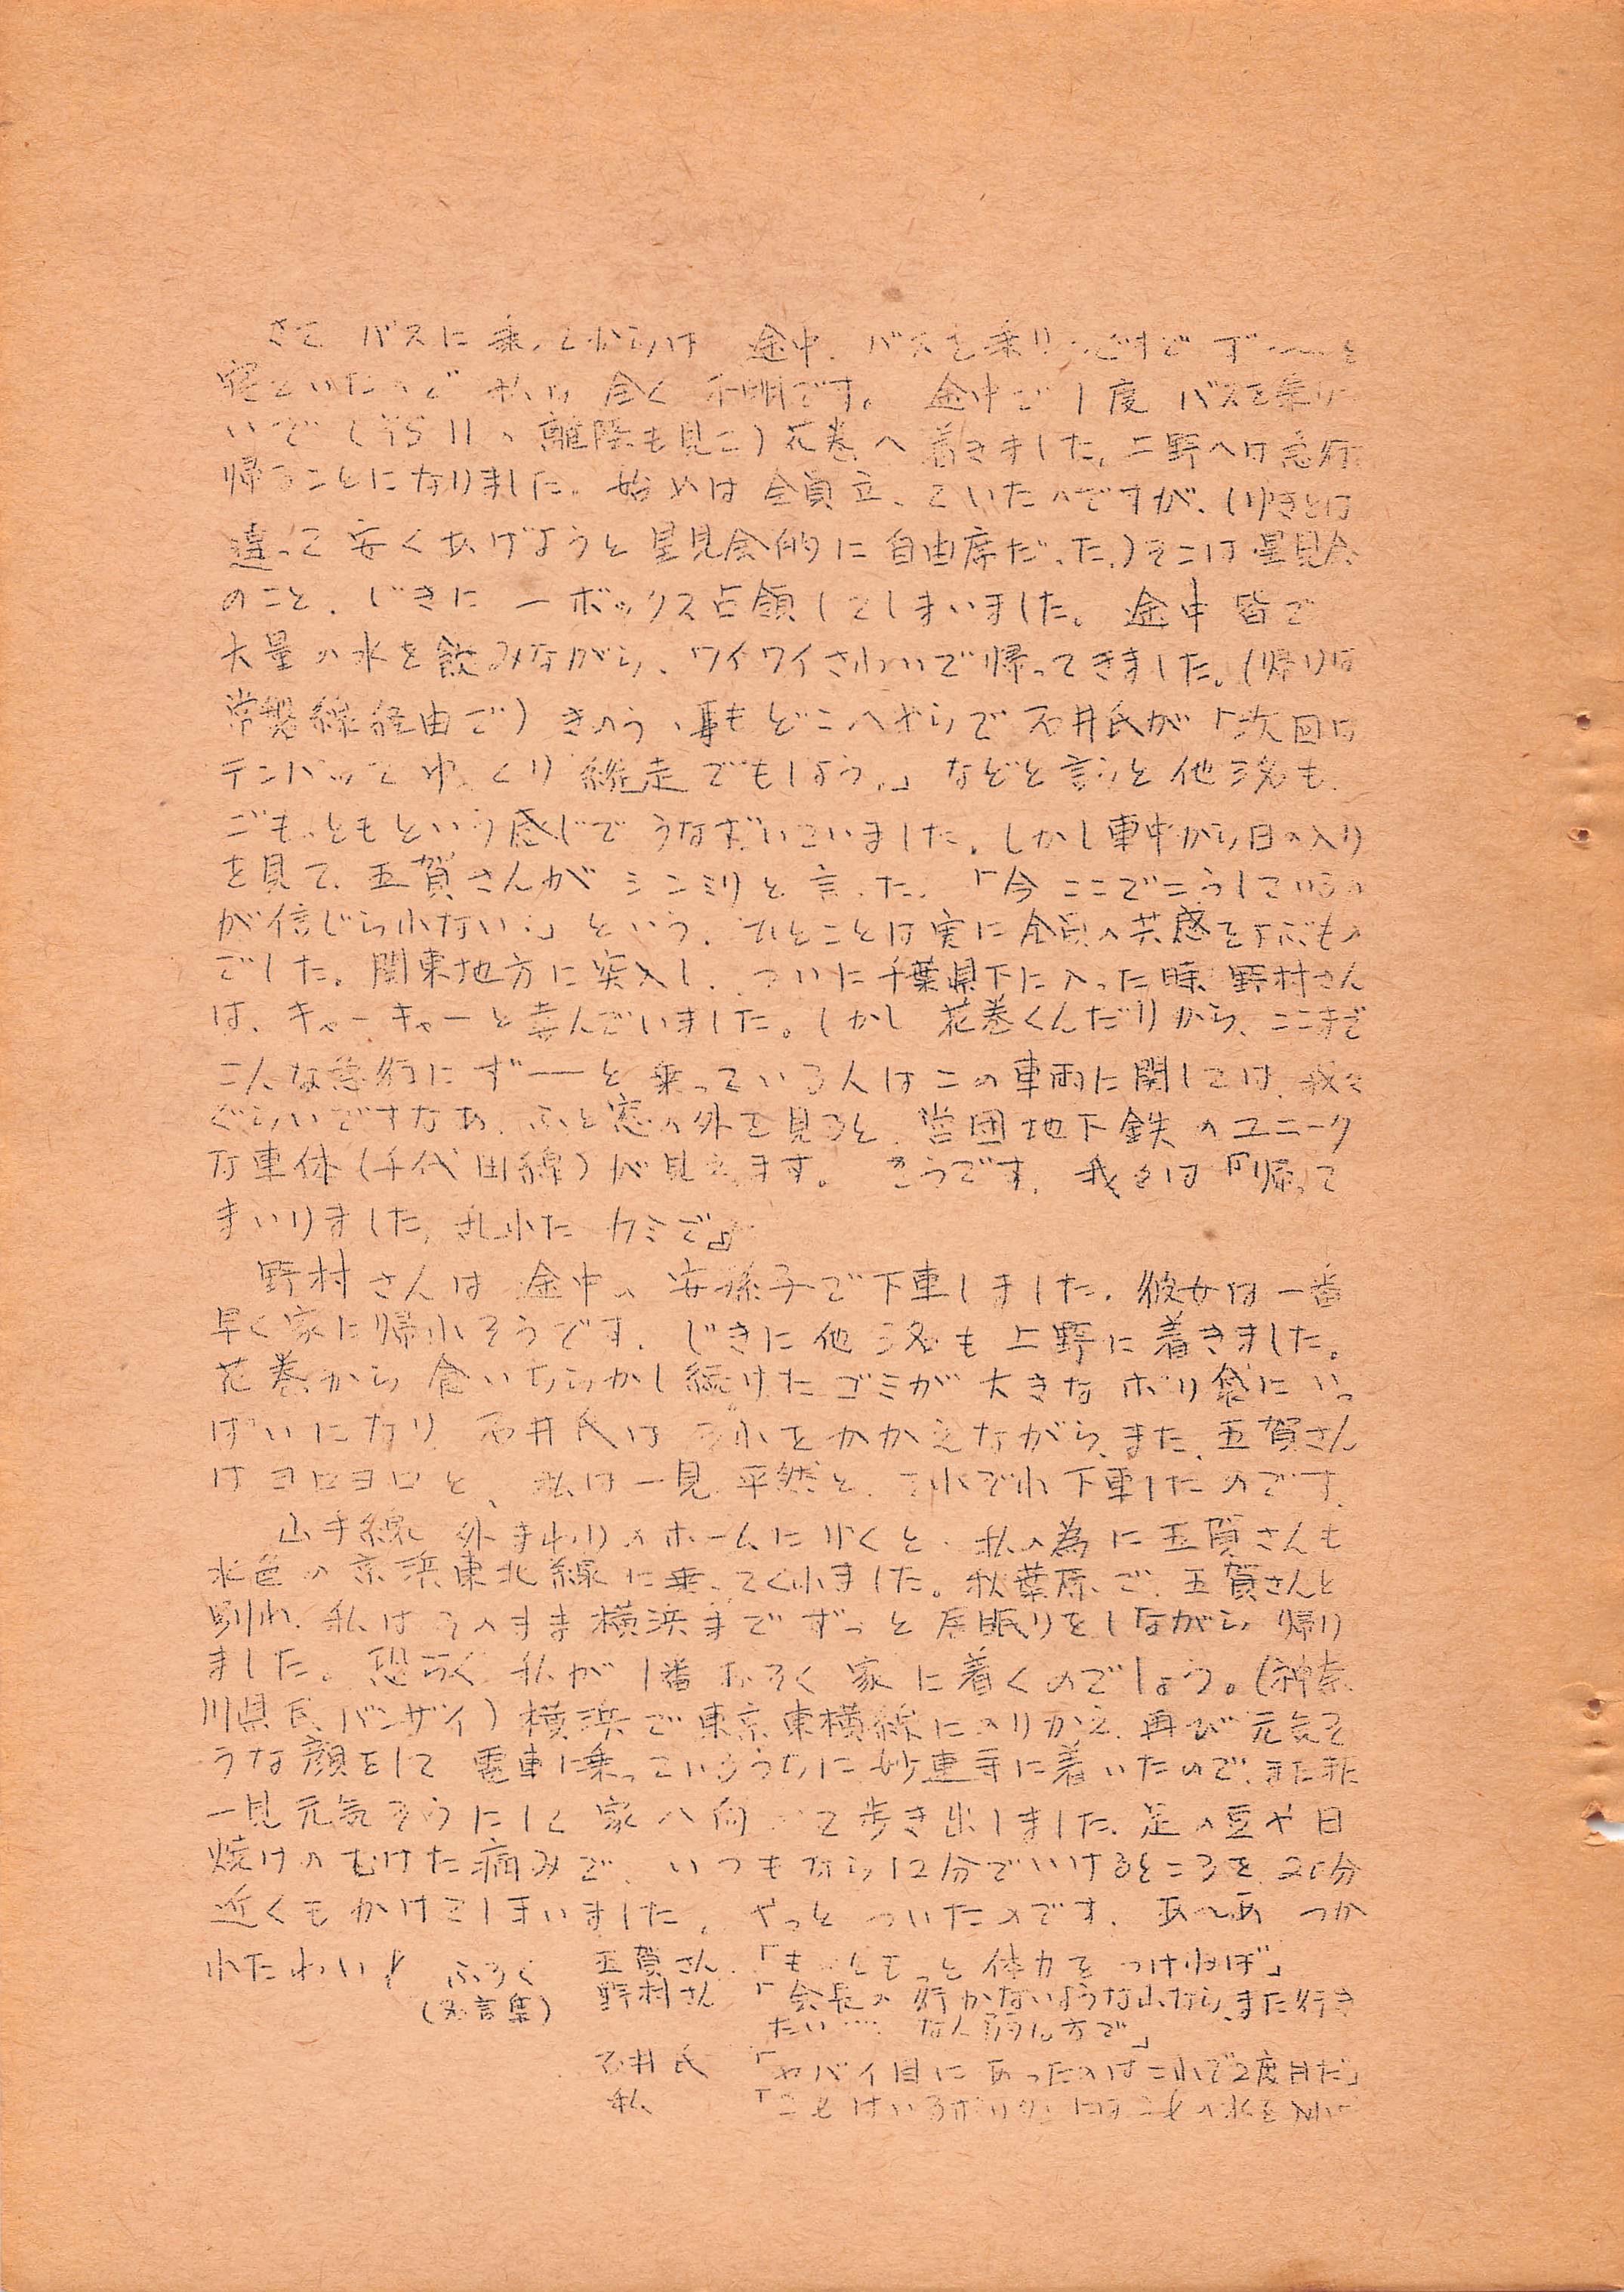 さて バスに乗ってからは 途中、バスを乗り
寝ていたので 私は 全く 不明です。 途中で 1度 バスを乗り
いで (YS11の 離陸も見て) 花巻へ 着きました。上野へは急行
帰ることになりました。始めは全員立っていたのですが、(ゆきとは
違って安くあげようと星見会的に自由席だった。)そこは星見会
のこと、じきに 一ボックス占領してしまいました。途中 皆で
大量の水を飲みながら、ワイワイさわいで帰ってきました。(帰りは
常磐線経由で) きのうの事もどこへやらで 石井氏が「次回は
テンパってゆっくり 縦走でもしよう。」などと言うと他3名も、
ごもっともという感じで うなずいていました。しかし車中から日の入り
を見て、五賀さんが シンミリと言った、「今ここでこうしているの
が信じられない。」という、ひとことは実に全員の共感をよぶもの
でした。関東地方に突入し、ついに千葉県下に入った時、野村さん
は、キャーキャーと喜んでいました。しかし 花巻くんだりから、ここまで
こんな急行にずーーと 乗っている人はこの車両に関しては、我々
ぐらいですなあ、ふと窓の外を見ると、営団地下鉄のユニーク
な車体(千代田線)が見えます。 そうです、我々は『帰って
まいりました、乱れた カミで』
野村さんは 途中の 安孫子で下車しました。彼女は一番
早く家に帰れそうです。じきに他3名も上野に着きました。
花巻から 食いちらかし続けたゴミが大きなポリ袋にいっ
ぱいになり、石井氏は それをかかえながら、また、五賀さん
はヨロヨロと、私は一見 平然と、それぞれ下車したのです。
山手線 外まわりのホームに行くと、私の為に五賀さんも
水色の京浜東北線に乗ってくれました。秋葉原で、五賀さんと
別れ、私はそのまま横浜までずっと居眠りをしながら帰り
ました。恐らく 私が1番おそく家に着くのでしょう。(神奈
川県民、バンザイ) 横浜で東京東横線に入りかえ、再び元気そ
うな顔をして 電車に乗っているうちに妙蓮寺に着いたので、またまた
一見元気そうにして 家へ向って歩き出しました。足の豆や日
焼けのむけた痛みで、いつもなら12分でいけるところを 20分
近くもかけてしまいました。やっと ついたのです。あ〜あ つか
れたわい! ふろく
(名言集)
五賀さん 「もっともっと 体力を つけねば」
野村さん 「会長の 行かないような山なら、また行き
たい…
石井氏 「ヤバイ目に あったのはこれで2度目だ」
私